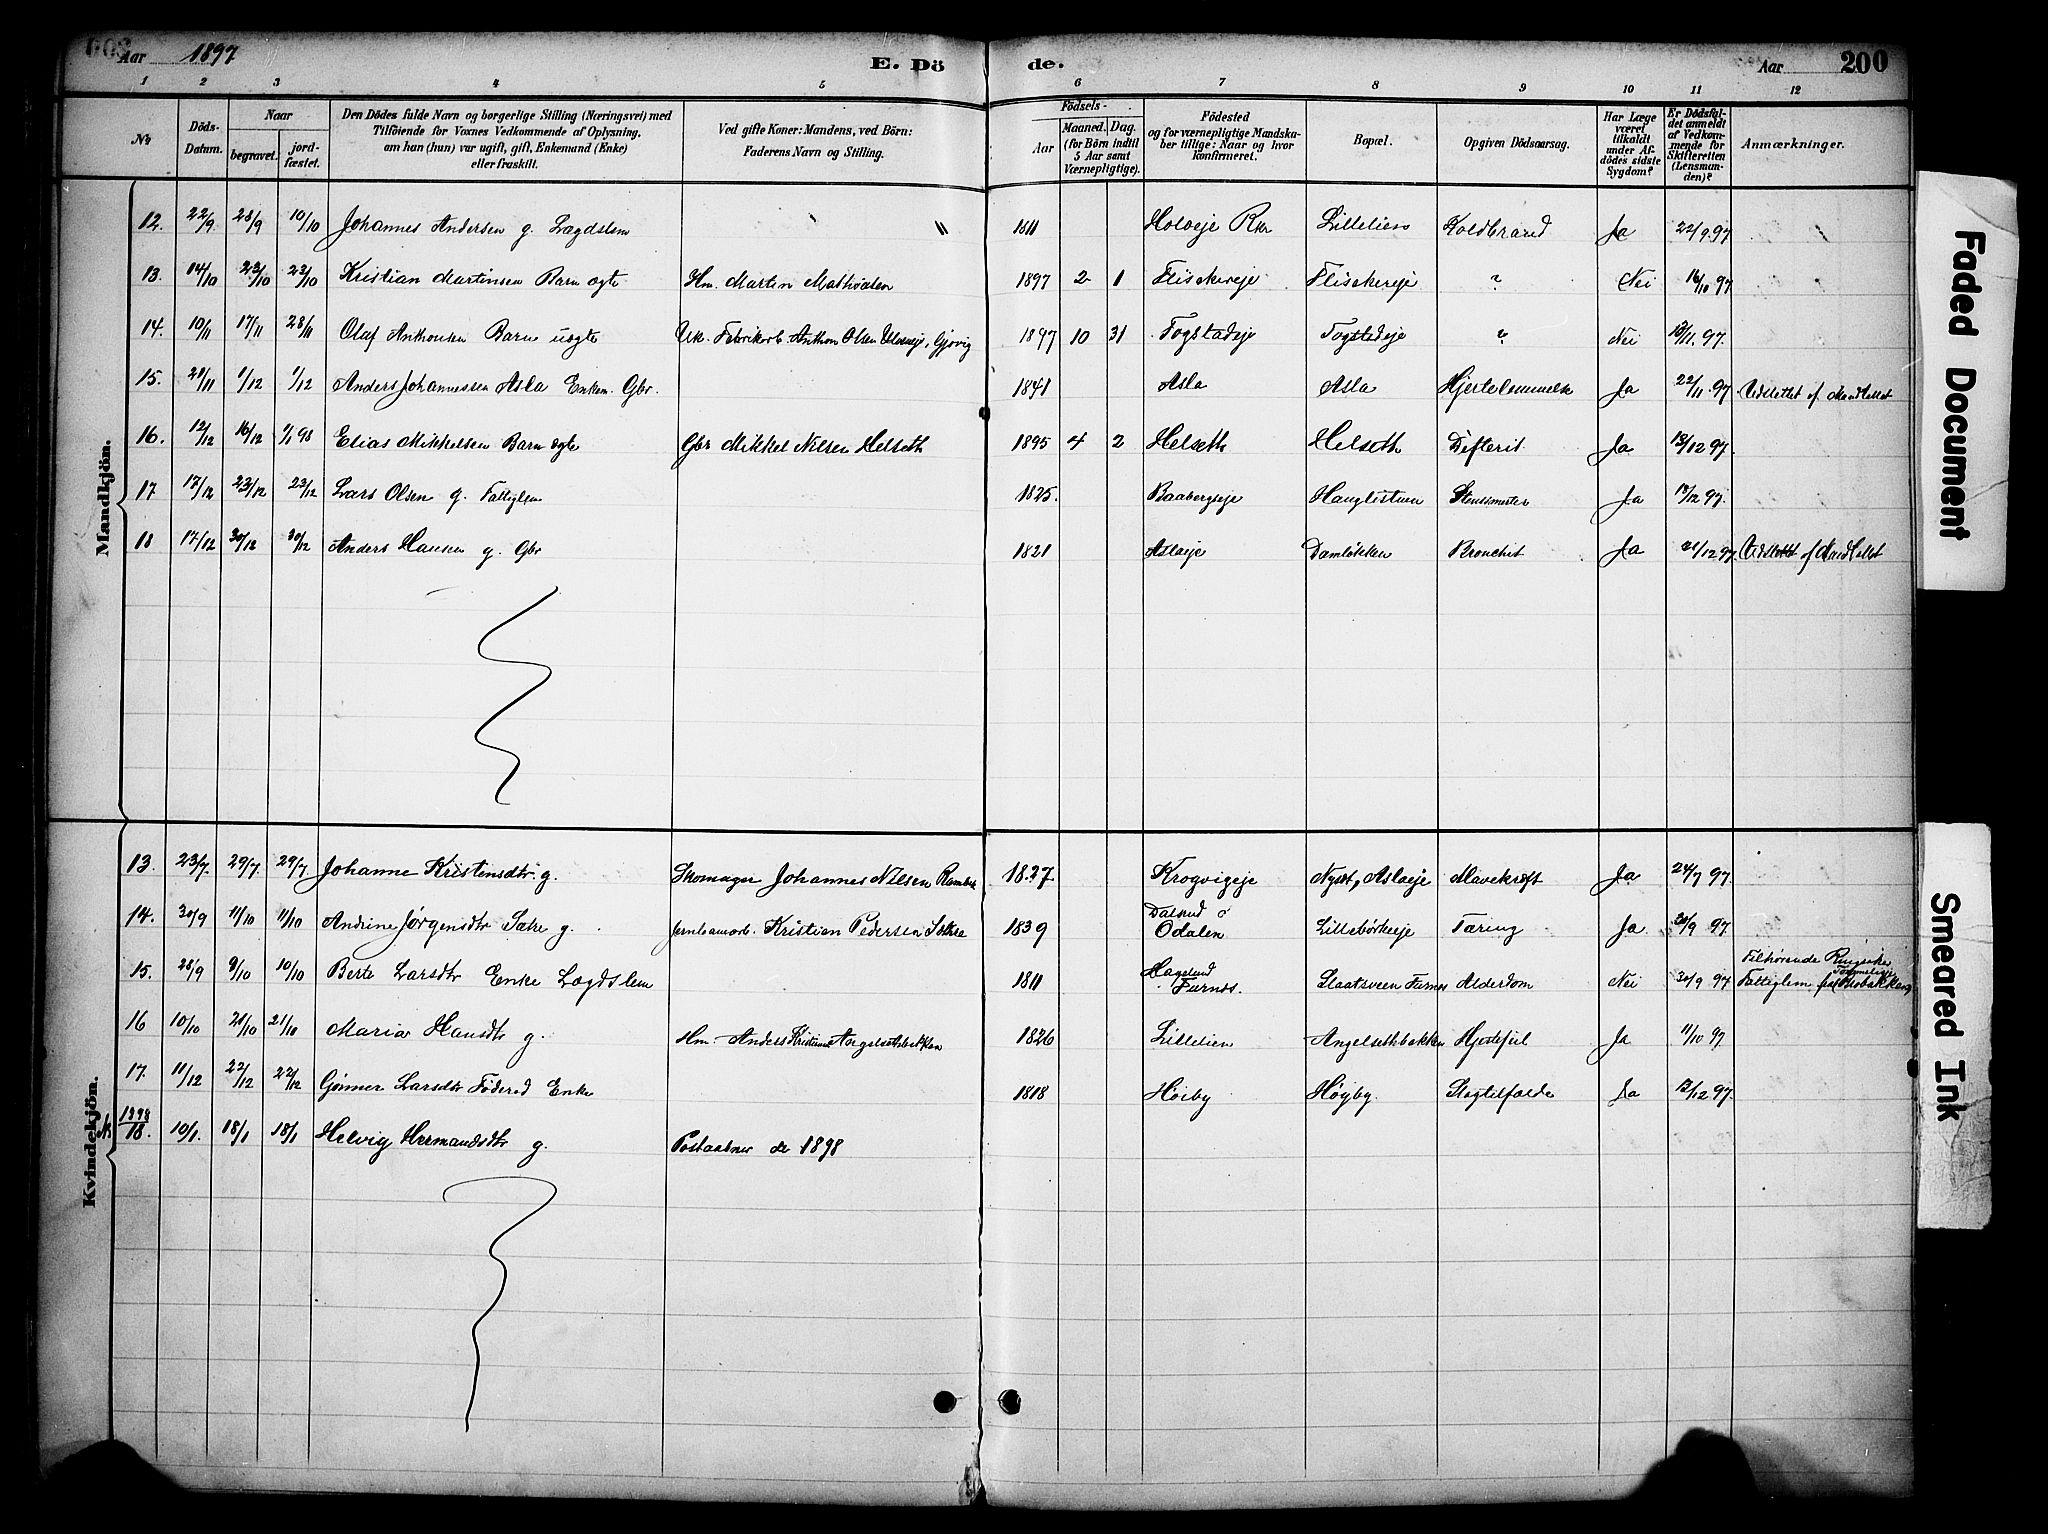 Aar 1897 E. Dö de. Aar 200
1 2 3 4 5 6 7 8 9 10 11 12
No Döds-Datum. Naar begravet. jord-fæstet. Den Dödes fulde Navn og borgerlige Stilling (Næringsvei) med Tilföiende for Voxnes Vedkommende af Oplysning, om han (hun) var ugift, gift, Enkemand (Enke) eller fraskilt. Ved gifte Koner: Mandens, ved Börn: Faderens Navn og Stilling. Födsels- Aar Maaned. Dag. (for Börn indtil 5 Aar samt Værnepligtige). Födested og for værnepligtige Mandska-ber tillige: Naar og hvor konfirmeret. Bopæl. Opgiven Dödsaarsag. Har Læge været tilkaldt under Af-dödes sidste Sygdom? Er Dödsfal-det anmeldt af Vedkom-mende for Skifteretten (Lensman-den)? Anmærkninger.
Mandkjön.
12. 22/9 28/9 10/10 Johannes Andersen g. Lægdslem " 1811 Holveje Rkr Lillelien Koldbrand Ja 22/9.97
13. 14/10 23/10 23/10 Kristian Martinsen Barn ægte Hm. Martin Mathisen 1897 2 1 Flisckereje Flisckereje ? Nei 16/10 97
14. 10/11 17/11 28/11 Olaf Anthonsen Barn uægte Uk. Fabrikarb. Anthon Olsen Gjøvig 1897 10 31 Fogstadeje Fogstadeje ? Nei 13/11. 97.
15. 21/11 1/12 1/12 Anders Johannessen Asla Enkem. Gbr. 1841 Asla Asla Hjertelammelse Ja 22/11.97 Udslettet af Mandtallet
16. 12/12 16/12 1/1 98 Elias Mikkelsen Barn ægte Gbr Mikkel Nilsen Helseth 1895 4 2 Helseth Helseth Difterit Ja 13/12 97.
17 17/12 23/12 23/12 Lars Olsen g. Fattiglem 1825. Baabergseje Hauglistuen Stensmerter Ja 17/12 97.
18 17/12 30/12 30/12 Anders Hansen g. Gbr 1821 Aslaeje Damløkken Bronchit Ja 21/12 97. Udslettet af Mandtallet
Kvindekjön.
13. 23/7. 29/7. 29/7 Johanne Kristensdtr. g. Skomager Johannes Nilsen 1827 Krogvigeje Aslaeje Mavekræft Ja 24/7 97.
14. 30/9 11/10 11/10 Andrine Jørgensdtr Sætre g. Jernbanearb. Kristian Pedersen Sætre 1839 Odalen Lillebørkeje Tæring Ja 30/9 97.
15. 28/9 9/10 10/10 Berte Larsdtr Enke Lægdslem 1811 Hagelund Furnæs. Staatsveen Furnes Alderdom Nei 30/9 97 Tilhørende Ringsaker Fattiglem
16 10/10 21/10 21/10 Maria Hansdtr g. Hm. Anders Kristiansen Angelsethbakken 1826 Lillelien Angelsethbakken Hjertefeil Ja 11/10 97
17. 11/12 22/12 22/12 Gunner Larsdtr Føderaad Enke 1818 Høiby Høyby. Slagtilfælde Ja 12/12 97.
1898 18. 10/1. 18/1 18/1 Helvig Hermandsdtr g. Postaabner se 1898
Faded Document
Smeared Ink